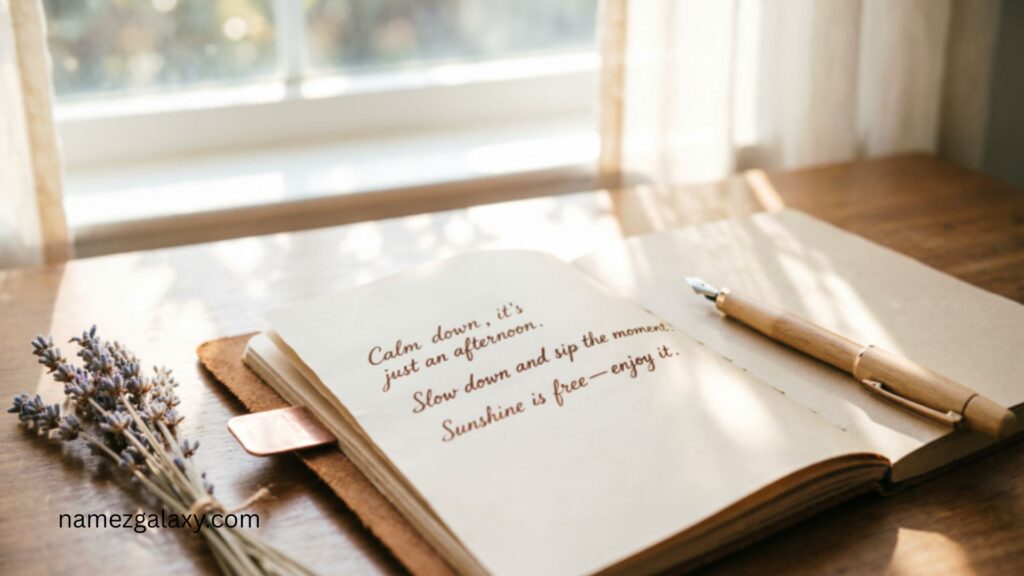 Calm down, it's
just an afternoon.
Slow down and sip the moment.
Sunshine is free—enjoy it.
namezgalaxy.com